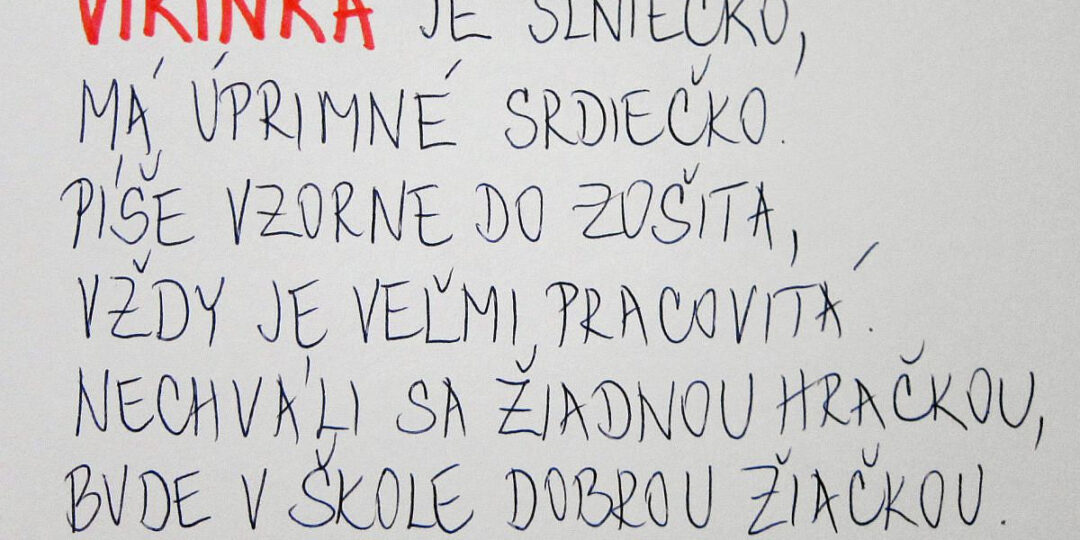 VIKINKA JE SLNIEČKO,
MÁ ÚPRIMNÉ SRDIEČKO.
PÍŠE VZORNE DO ZOŠITA,
VŽDY JE VEĽMI PRACOVITÁ.
NECHVÁLI SA ŽIADNOU HRAČKOU,
BUDE V ŠKOLE DOBROU ŽIAČKOU.